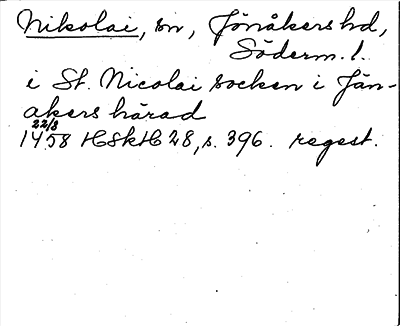 Nikolai, sn, Jönåkers hd,
Söderm. l.
i St. Nicolai socken i Jön-
akers härad
22/8
1458 HSkH 28, s. 396. regest.